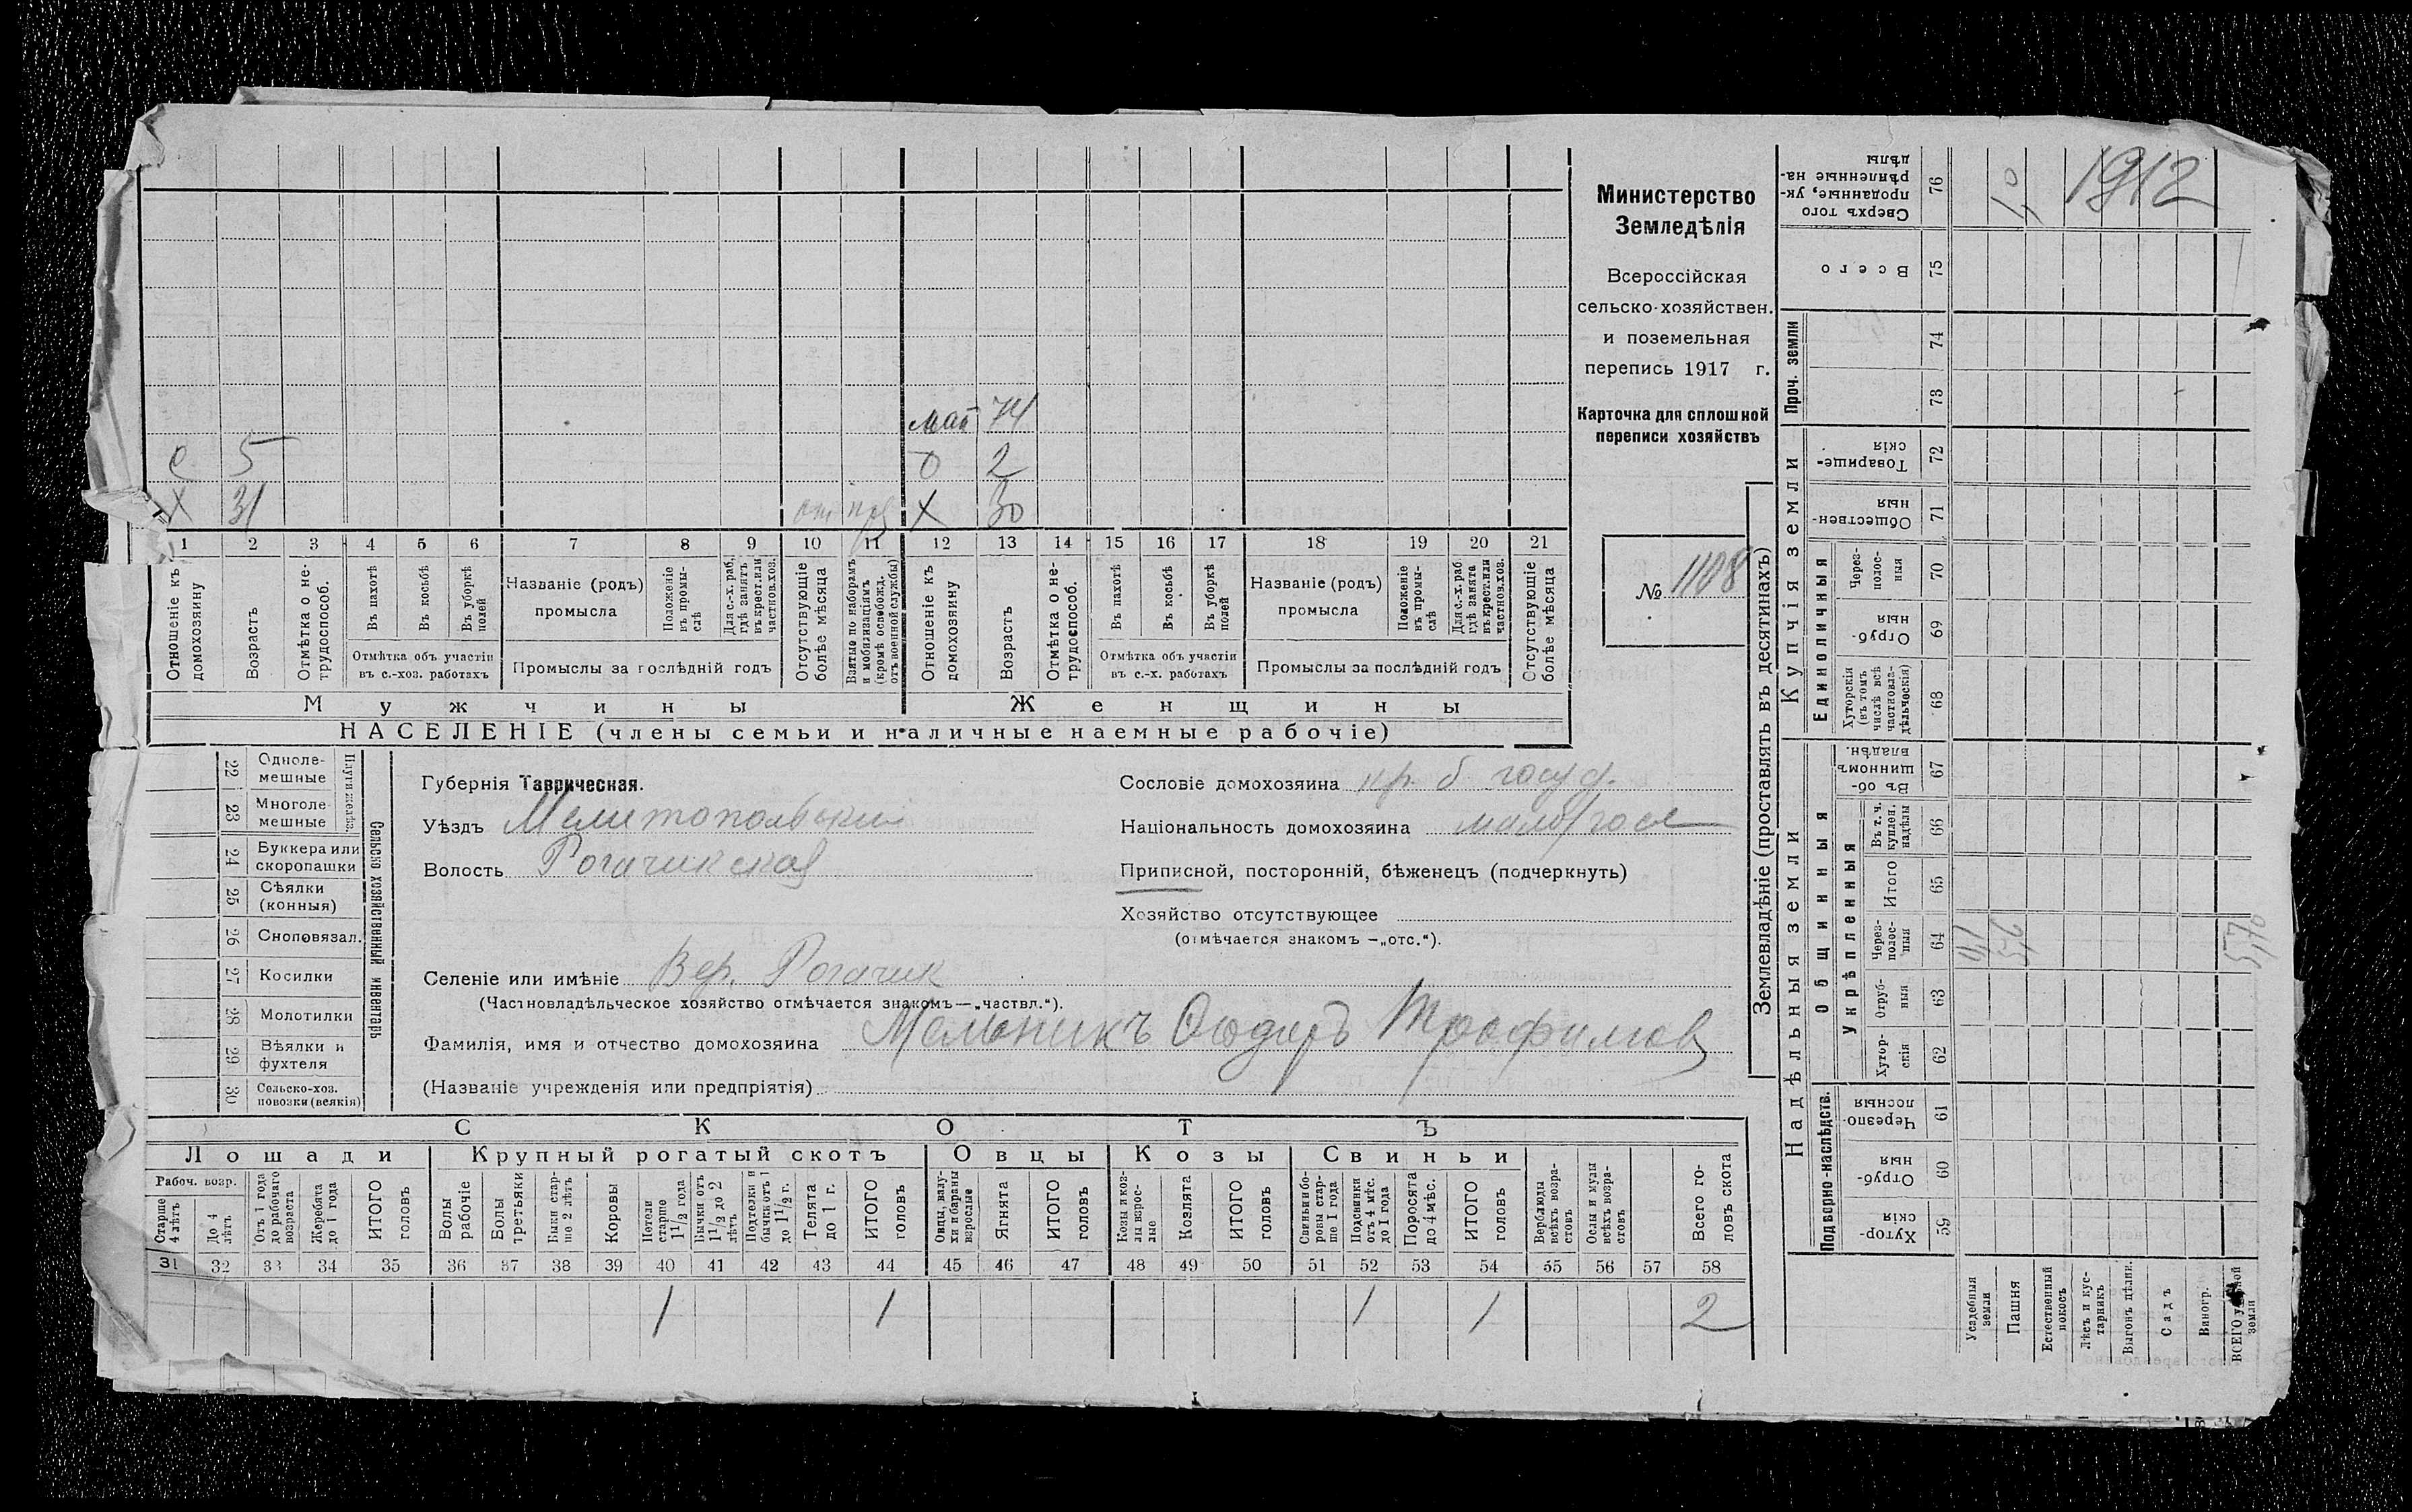 Министерство
Земледѣлія
Всероссійская
сельско-хозяйствен.
и поземельная
перепись 1917 г.
Карточка для сплошной
переписи хозяйствъ
№ 1108
мат 74
с 5
О 2
Х 31
Х 30
1 2 3 4 5 6 7 8 9 10 11 12 13 14 15 16 17 18 19 20 21
Отношеніе къ домохозяину
Возрастъ
Отмѣтка о не-трудоспособ.
Въ пахотѣ
Въ косьбѣ
Въ уборкѣ полей
Отмѣтка объ участіи
въ с.-хоз. работахъ
Названіе (родъ)
промысла
Положеніе въ промы-слѣ
Для с.-х. раб. гдѣ занятъ въ крест. или частнов. хоз.
Промыслы за послѣдній годъ
Отсутствующіе болѣе мѣсяца
Взятые по наборамъ и мобилизаціямъ (кромѣ освобожд. отъ военной службы)
Отношеніе къ домохозяину
Возрастъ
Отмѣтка о не-трудоспособ.
Въ пахотѣ
Въ косьбѣ
Въ уборкѣ полей
Отмѣтка объ участіи
въ с.-х. работахъ
Названіе (родъ)
промысла
Положеніе въ промы-слѣ
Для с.-х. раб. гдѣ занята въ крест. или частнов. хоз.
Промыслы за послѣдній годъ
Отсутствующіе болѣе мѣсяца
Мужчины Женщины
НАСЕЛЕНІЕ (члены семьи и наличные наемные рабочіе)
Сельско хозяйственный инвентарь
Плуги желѣз.
22 Одноле-мешные
23 Многоле-мешные
24 Буккера или скоропашки
25 Сѣялки (конныя)
26 Сноповязал.
27 Косилки
28 Молотилки
29 Вѣялки и фухтеля
30 Сельско-хоз. повозки (всякія)
Губернія Таврическая.
Уѣздъ Мелитопольскій
Волость Рогачикская
Селеніе или имѣніе Вер. Рогачик
(Частновладѣльческое хозяйство отмѣчается знакомъ—„частвл.“).
Фамилія, имя и отчество домохозяина Мельникъ Ѳодоръ Трофимов
(Названіе учрежденія или предпріятія)
Сословіе домохозяина кр. б. госуд.
Національность домохозяина малоросс
Приписной, посторонній, бѣженецъ (подчеркнуть)
Хозяйство отсутствующее
(отмѣчается знакомъ —„отс.“).
СКОТЪ
Лошади Крупный рогатый скотъ Овцы Козы Свиньи
Рабоч. возр.
Старше 4 лѣтъ
До 4 лѣтъ
Отъ 1 года до рабочаго возраста
Жеребята до 1 года
ИТОГО головъ
Волы рабочіе
Волы третьяки
Быки стар-ше 2 лѣтъ
Коровы
Нетели старше 1½ года
Бычки отъ 1½ до 2 лѣтъ
Подтелки и бычки отъ 1 до 1½ г.
Телята до 1 г.
ИТОГО головъ
Овцы, валу-хи и бараны взрослые
Ягнята
ИТОГО головъ
Козы и коз-лы взрос-лые
Козлята
ИТОГО головъ
Свиньи и бо-ровы стар-ше 1 года
Подсвинки отъ 4 мѣс. до 1 года
Поросята до 4 мѣс.
ИТОГО головъ
Верблюды всѣхъ возра-стовъ
Ослы и мулы всѣхъ возра-стовъ
Всего го-ловъ скота
31 32 33 34 35 36 37 38 39 40 41 42 43 44 45 46 47 48 49 50 51 52 53 54 55 56 57 58
1 1 1 1 2
Землевладѣніе (проставлять въ десятинахъ)
Надѣльныя земли
Купчія земли
Проч. земли
Подворно-наслѣдств.
Общинныя
Укрѣпленныя
Единоличныя
Хутор-скія 59
Отруб-ныя 60
Черезпо-лосныя 61
Хутор-скія 62
Отруб-ныя 63
Через-полос-ныя 64
Итого 65
Въ т. ч. куплен. надѣлы 66
Въ об-щинномъ владѣн. 67
Хуторскія (въ томъ числѣ всѣ частновла-дѣльческія) 68
Отруб-ныя 69
Через-полос-ныя 70
Обществен-ныя 71
Товарище-скія 72
73
74
Всего 75
Сверхъ того проданные, ук-рѣпленные на-дѣлы 76
1912
Усадебныя земли
Пашня
Естественный покосъ
Лѣсъ и кус-тарникъ
Выгонъ цѣлин.
Садъ
Виногр.
ВСЕГО удобной земли
5,70